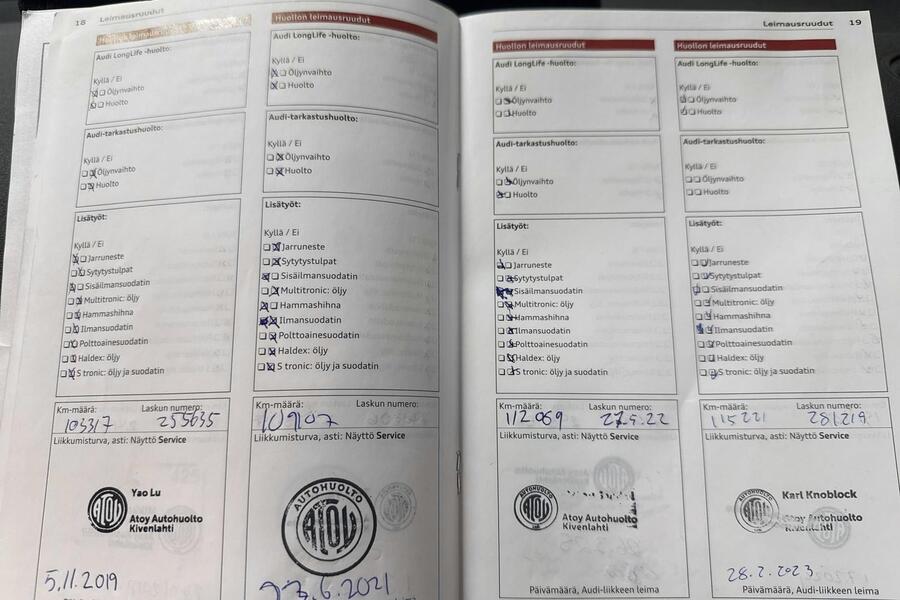 18 Leimausruudut
Huollon leimausruudut
Audi LongLife -huolto:
Kyllä / Ei
Öljynvaihto
Huolto
Audi-tarkastushuolto:
Kyllä / Ei
Öljynvaihto
Huolto
Lisätyöt:
Kyllä / Ei
Jarruneste
Sytytystulpat
Sisäilmansuodatin
Multitronic: öljy
Hammashihna
Ilmansuodatin
Polttoainesuodatin
Haldex: öljy
S tronic: öljy ja suodatin
Km-määrä: Laskun numero:
103317 255635
Liikkumisturva, asti: Näyttö Service
ATOY
Yao Lu
Atoy Autohuolto
Kivenlahti
5.11.2019
Huollon leimausruudut
Audi LongLife -huolto:
Kyllä / Ei
Öljynvaihto
Huolto
Audi-tarkastushuolto:
Kyllä / Ei
Öljynvaihto
Huolto
Lisätyöt:
Kyllä / Ei
Jarruneste
Sytytystulpat
Sisäilmansuodatin
Multitronic: öljy
Hammashihna
Ilmansuodatin
Polttoainesuodatin
Haldex: öljy
S tronic: öljy ja suodatin
Km-määrä: Laskun numero:
109107
Liikkumisturva, asti: Näyttö Service
AUTOHUOLTO
ATOY
6.2021
Leimausruudut 19
Huollon leimausruudut
Audi LongLife -huolto:
Kyllä / Ei
Öljynvaihto
Huolto
Audi-tarkastushuolto:
Kyllä / Ei
Öljynvaihto
Huolto
Lisätyöt:
Kyllä / Ei
Jarruneste
Sytytystulpat
Sisäilmansuodatin
Multitronic: öljy
Hammashihna
Ilmansuodatin
Polttoainesuodatin
Haldex: öljy
S tronic: öljy ja suodatin
Km-määrä: Laskun numero:
112 069
Liikkumisturva, asti: Näyttö Service
ATOY
Atoy Autohuolto
Kivenlahti
Päivämäärä, Audi-liikkeen leima
Huollon leimausruudut
Audi LongLife -huolto:
Kyllä / Ei
Öljynvaihto
Huolto
Audi-tarkastushuolto:
Kyllä / Ei
Öljynvaihto
Huolto
Lisätyöt:
Kyllä / Ei
Jarruneste
Sytytystulpat
Sisäilmansuodatin
Multitronic: öljy
Hammashihna
Ilmansuodatin
Polttoainesuodatin
Haldex: öljy
S tronic: öljy ja suodatin
Km-määrä: Laskun numero:
115221 281219
Liikkumisturva, asti: Näyttö Service
ATOY
Karl Knoblock
Atoy Autohuolto
Kivenlahti
28.2.2023
Päivämäärä, Audi-liikkeen leima